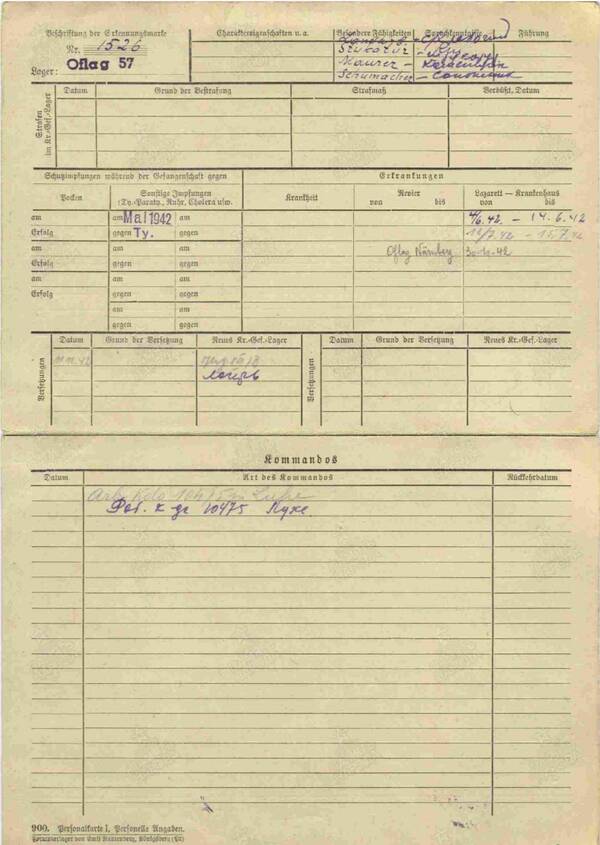 Beschriftung der Erkennungsmarke
Nr. 1526
Lager: Oflag 57
Charaktereigenschaften u. a.
Besondere Fähigkeiten
Sprachkenntnisse
Führung
Maurer -
Schumacher -
Strafen im Kr.-Gef.-Lager
Datum
Grund der Bestrafung
Strafmaß
Verbüßt, Datum
Schutzimpfungen während der Gefangenschaft gegen
Erkrankungen
Pocken
Sonstige Impfungen
(Ty.-Paraty., Ruhr, Cholera usw.
Krankheit
Revier
von bis
Lazarett — Krankenhaus
von bis
am am Mai 1942 am
4/6.42. - 14.6.42
Erfolg gegen Ty. gegen
11/7.42 - 15.7.42
am am am
Oflag Nürnberg
Erfolg gegen gegen
am am am
Erfolg gegen gegen
am am
gegen gegen
Versetzungen
Datum
Grund der Versetzung
Neues Kr.-Gef.-Lager
Versetzungen
Datum
Grund der Versetzung
Neues Kr.-Gef.-Lager
лагерь
Kommandos
Datum
Art des Kommandos
Rückkehrdatum
Arb. Kdo 10475 in
Раб. к да 10475 Луке.
900. Personalkarte I, Personelle Angaben.